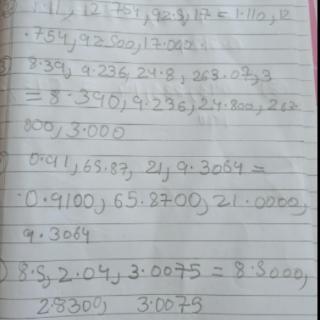 1.11, 12.754, 92.5, 17 = 1.110, 12
.754, 92.500, 17.000
8.39, 9.236, 24.8, 263.07, 3
= 8.390, 9.236, 24.800, 263
000, 3.000
0.91, 65.87, 21, 9.3064 =
0.9100, 65.8700, 21.0000,
9.3064
8.5, 2.04, 3.0075 = 8.5000,
2.8300, 3.0075